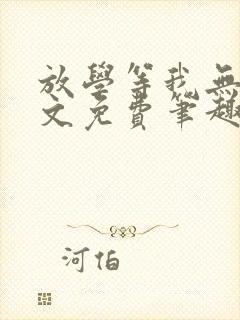 放學等我無
文免費筆趣
河伯